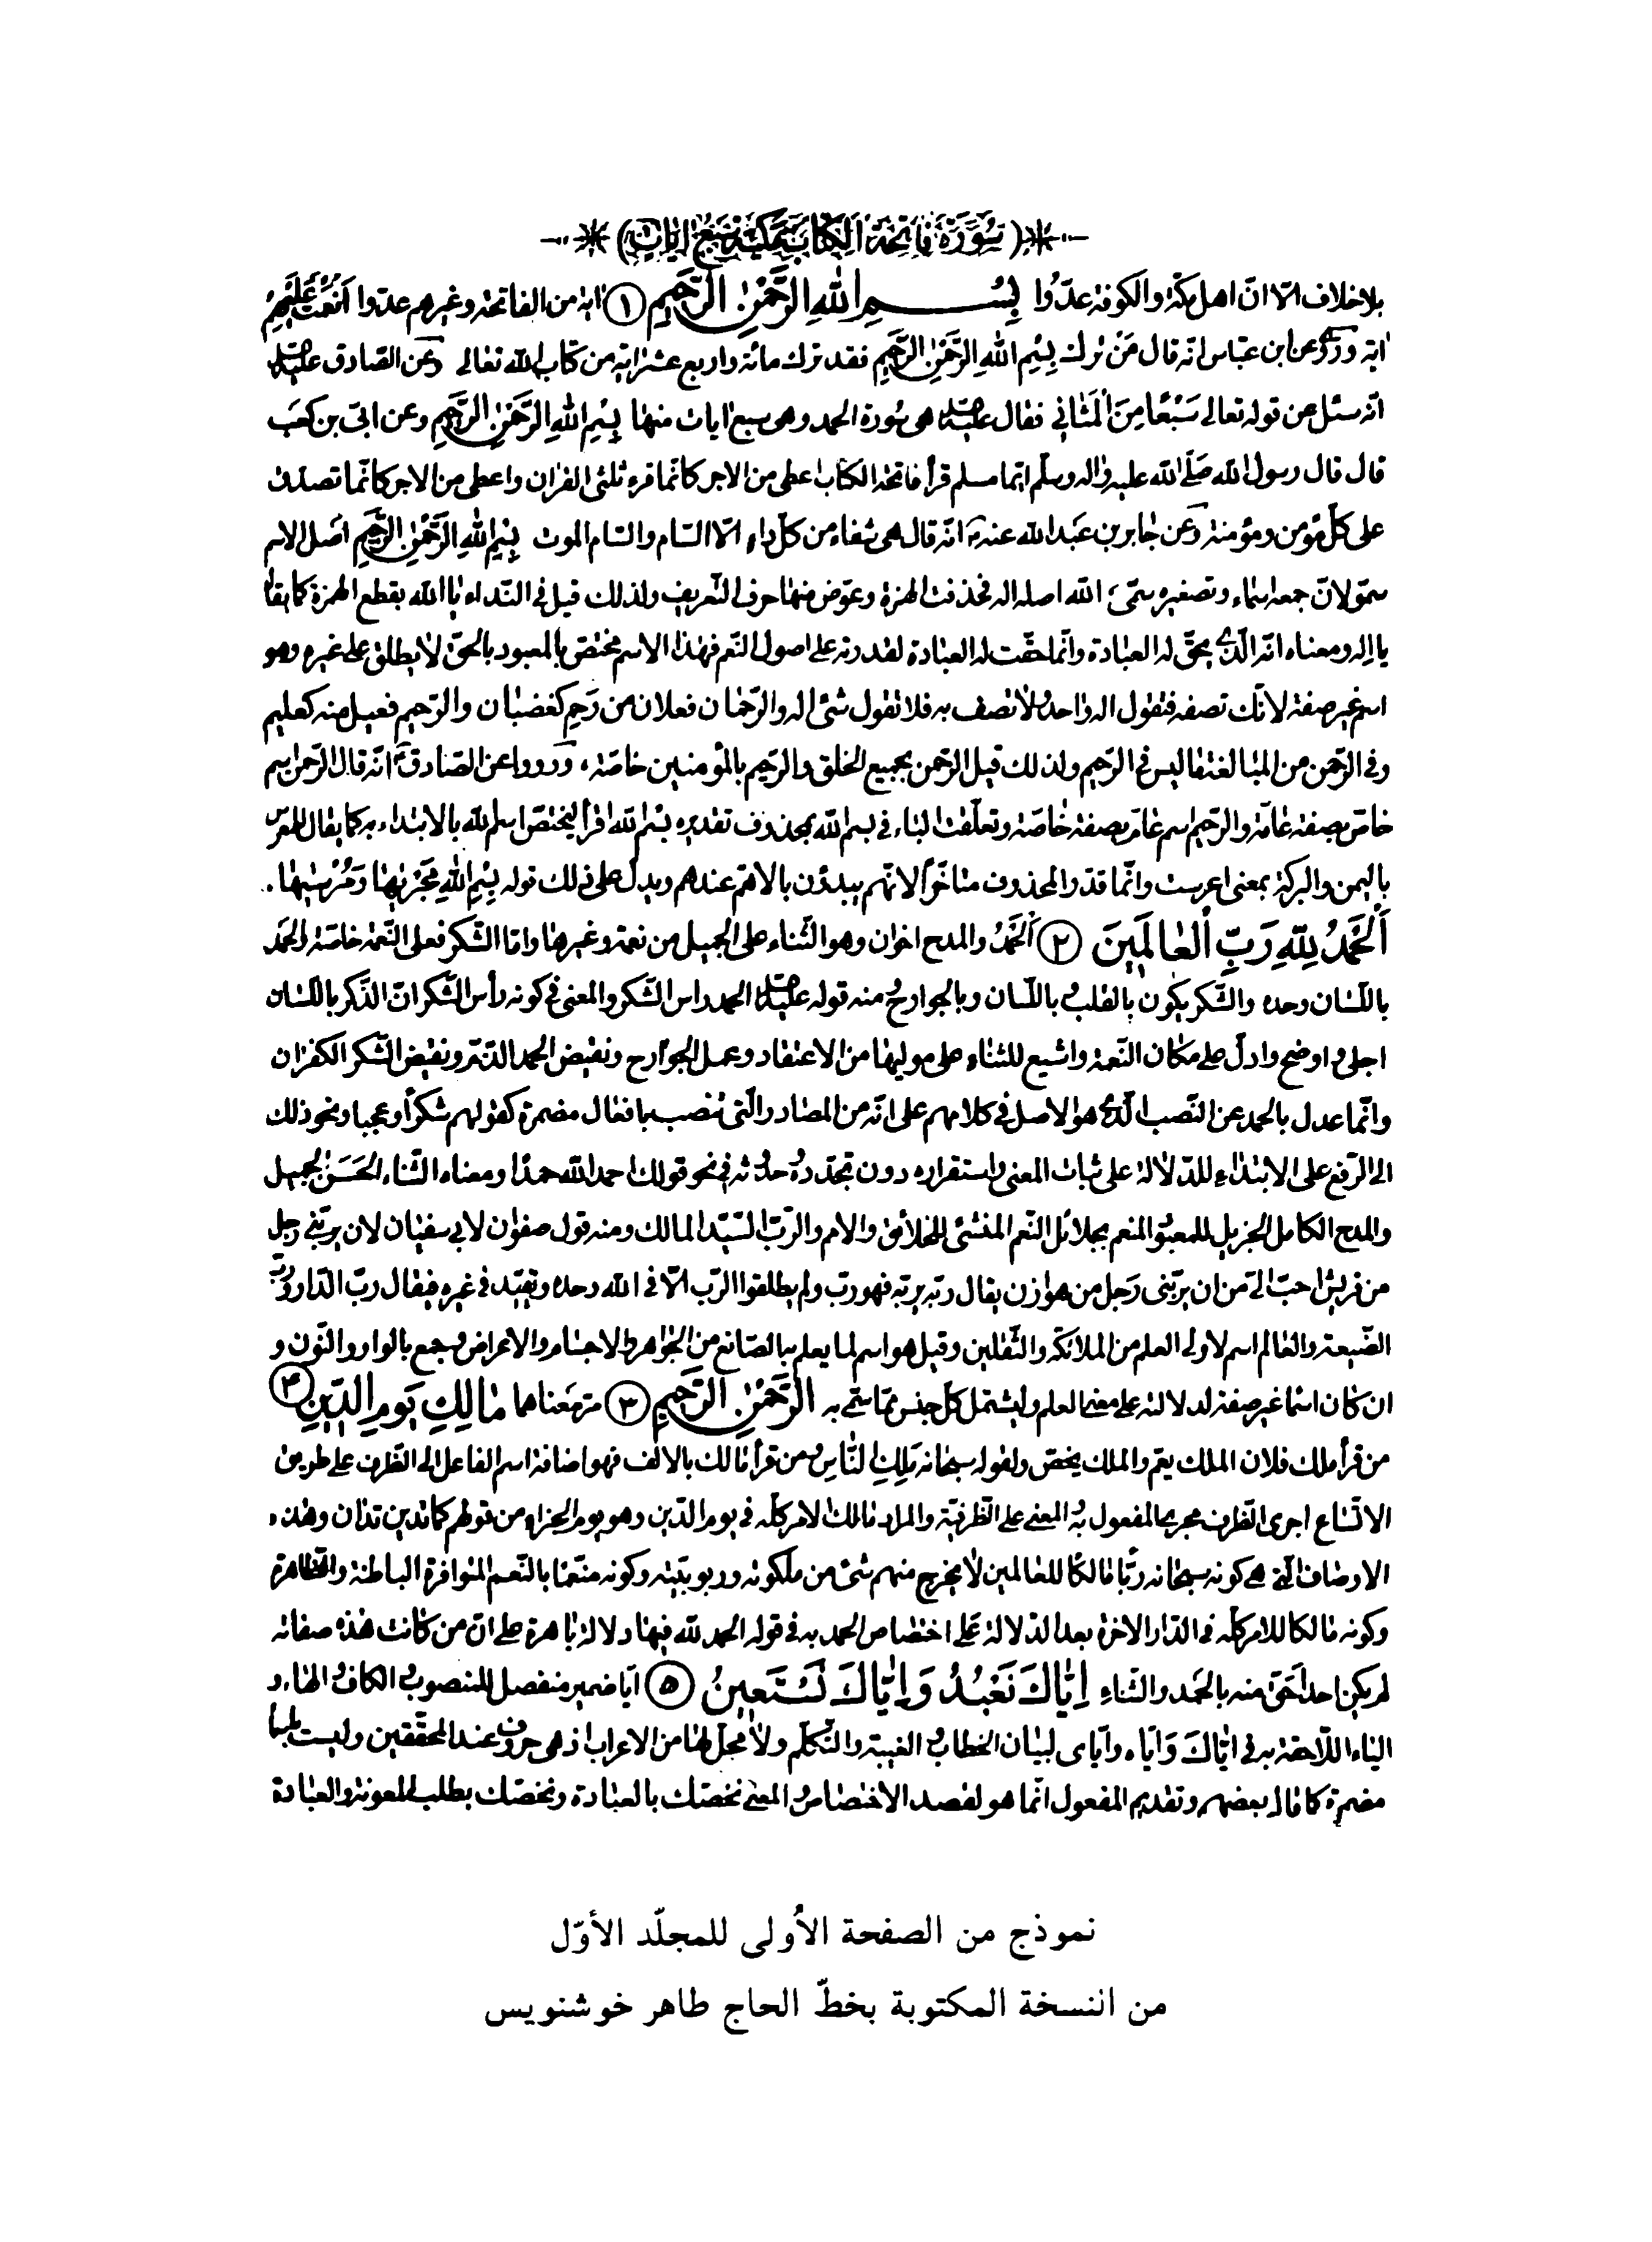 (سورة فاتحة الكتاب مكية سبع ايات)
بلا خلاف الّا انّ اهل مكة والكوفة عدّوا بِسْمِ اللهِ الرَّحْمٰنِ الرَّحيمِ ١ اية من الفاتحة وغيرهم عدّوا اَنْعَمْتَ عَلَيْهِمْ
اية وروى عن ابن عبّاس انّه قال مَنْ ترك بِسْمِ اللهِ الرَّحْمٰنِ الرَّحيمِ فقد ترك مائة واربع عشر اية من كتاب الله تعالى وعن الصّادق عليه السلام
انّه سئل عن قوله تعالى سَبْعًا مِنَ الْمَثاني فقال عليه السلام هى سورة الحمد وهى سبع ايات منها بِسْمِ اللهِ الرَّحْمٰنِ الرَّحيمِ وعن ابىّ بن كعب
قال قال رسول الله صَلَّى الله عليه واله وسلّم ايّما مسلم قرأ فاتحة الكتاب اعطى من الاجر كانّما قرء ثلثى القران واعطى من الاجر كانّما تصدّق
على كلّ مؤمن ومؤمنة وعن جابر بن عبد الله عنه ص انّه قال هى شفاء من كلّ داء الّا السّام والسّام الموت بِسْمِ اللهِ الرَّحْمٰنِ الرَّحيمِ اصل الاسم
سموّ لانّ جمعه اسماء وتصغيره سمىّ الله اصله اله فحذفت الهمزة وعوّض منها حرف التّعريف ولذلك قيل فى النّداء يا الله بقطع الهمزة كما يقال
يا اله ومعناه انّه الّذى يحقّ له العبادة وانّما حقّت له العبادة لقدرته على اصول النّعم فهذا الاسم مختصّ بالمعبود بالحقّ لا يطلق على غيره وهو
اسم غير صفة لانّك تصفه فتقول اله واحد ولا تصف به فلا تقول شئ اله والرّحمان فعلان من رَحِمَ كغضبان والرّحيم فعيل منه كعليم
وفى الرّحمن من المبالغة ما ليس فى الرّحيم ولذلك قيل الرّحمن بجميع الخلق والرّحيم بالمؤمنين خاصّة، ورووا عن الصّادق ع انّه قال الرّحمن اسم
خاصّ بصفة عامّة والرّحيم اسم عامّ بصفة خاصّة وتعلّقت الباء فى بسم الله بمحذوف تقديره بسم الله اقرأ ليختصّ اسم الله بالابتداء به كما يقال للمعرّس
باليمن والبركة بمعنى اعرست وانّما قدّر المحذوف متاخّرًا لانّهم يبدؤن بالاهمّ عندهم ويدلّ على ذلك قوله بِسْمِ اللهِ مَجْريها وَمُرْسيها.
اَلْحَمْدُ لِلّٰهِ رَبِّ الْعالَمينَ ٢ اَلْحَمْدُ والمدح اخوان وهو الثّناء على الجميل من نعمة وغيرها وامّا الشّكر فعلى النّعمة خاصّة والحمد
باللّسان وحده والشّكر يكون بالقلب وباللّسان وبالجوارح ومنه قوله عليه السلام الحمد راس الشّكر والمعنى فى كونه رأس الشّكر انّ الذّكر باللّسان
اجلى واوضح وادلّ على مكان النّعمة واشيع للثناء على موليها من الاعتقاد وعمل الجوارح ونقيض الحمد الذّمّ ونقيض الشّكر الكفران
وانّما عدل بالحمد عن النّصب الّذى هو الاصل فى كلامهم على انّه من المصادر الّتى تنصب بافعال مضمرة كقولهم شكرًا وعجبا ونحو ذلك
الى الرّفع على الابتداء للدّلالة على ثبات المعنى واستقراره دون تجدّده وحدوثه فى نحو قولك احمد الله حمدًا ومعناه الثّناء الحَسَن الجميل
والمدح الكامل الجزيل للمعبود المنعم بجلائل النّعم المنشئ للخلائق والامم والرّبّ السّيّد المالك ومنه قول صفوان لابى سفيان لان يربّنى رجل
من قريش احبّ الىّ من ان يربّنى رجل من هوازن يقال ربّه يربّه فهو ربّ ولم يطلقوا الرّب الّا فى الله وحده ويقيّد فى غيره فيقال ربّ الدّار وربّ
الضّيعة والعالم اسم لاولى العلم من الملائكة والثّقلين وقيل هو اسم لما يعلم به الصّانع من الجواهر والاجسام والاعراض وجمع بالواو والنّون و
ان كان اسمًا غير صفة لدلالته على معنى العلم وليشتمل كلّ جنس ممّا سمّى به الرَّحْمٰنِ الرَّحيمِ ٣ مرّ معناهما مالِكِ يَومِ الدّينِ ٤
من قرأ ملك فلان الملك يعمّ والملك يخصّ ولقوله سبحانه مَلِكِ النّاسِ ومن قرأ مالك بالالف فهو اضافة اسم الفاعل الى الظّرف على طريق
الاتّساع اجرى الظّرف مجرى المفعول به والمعنى على الظّرفيّة والمراد مالك الامر كلّه فى يوم الدّين وهو يوم الجزاء من قولهم كما تدين تدان وهذه
الاوصاف الّتى هى كونه سبحانه ربًّا مالكًا للعالمين لا يخرج منهم شئ من ملكوته وربوبيّته وكونه منعّمًا بالنّعم المتوافرة الباطنة والظّاهرة
وكونه مالكا للامر كلّه فى الدّار الاخرة بعد الدّلالة على اختصاص الحمد به فى قوله الحمد لله فيها دلالة باهرة على انّ من كانت هذه صفاته
لم يكن احد احقّ منه بالحمد والثّناءِ اِيّاكَ نَعْبُدُ وَاِيّاكَ نَسْتَعينُ ٥ ايّا ضمير منفصل للمنصوب والكاف والهاء و
الياء اللّاحقة به فى ايّاكَ وَايّاه وايّاى لبيان الخطاب والغيبة والتّكلّم ولا محلّ لها من الاعراب اذ هى حروف عند المحقّقين وليست باسماء
مضمرة كما قال بعضهم وتقديم المفعول انّما هو لقصد الاختصاص والمعنى نخصّك بالعبادة ونخصّك بطلب المعونة والعبادة
نموذج من الصفحة الأولى للمجلّد الأوّل
من النسخة المكتوبة بخطّ الحاج طاهر خوشنويس